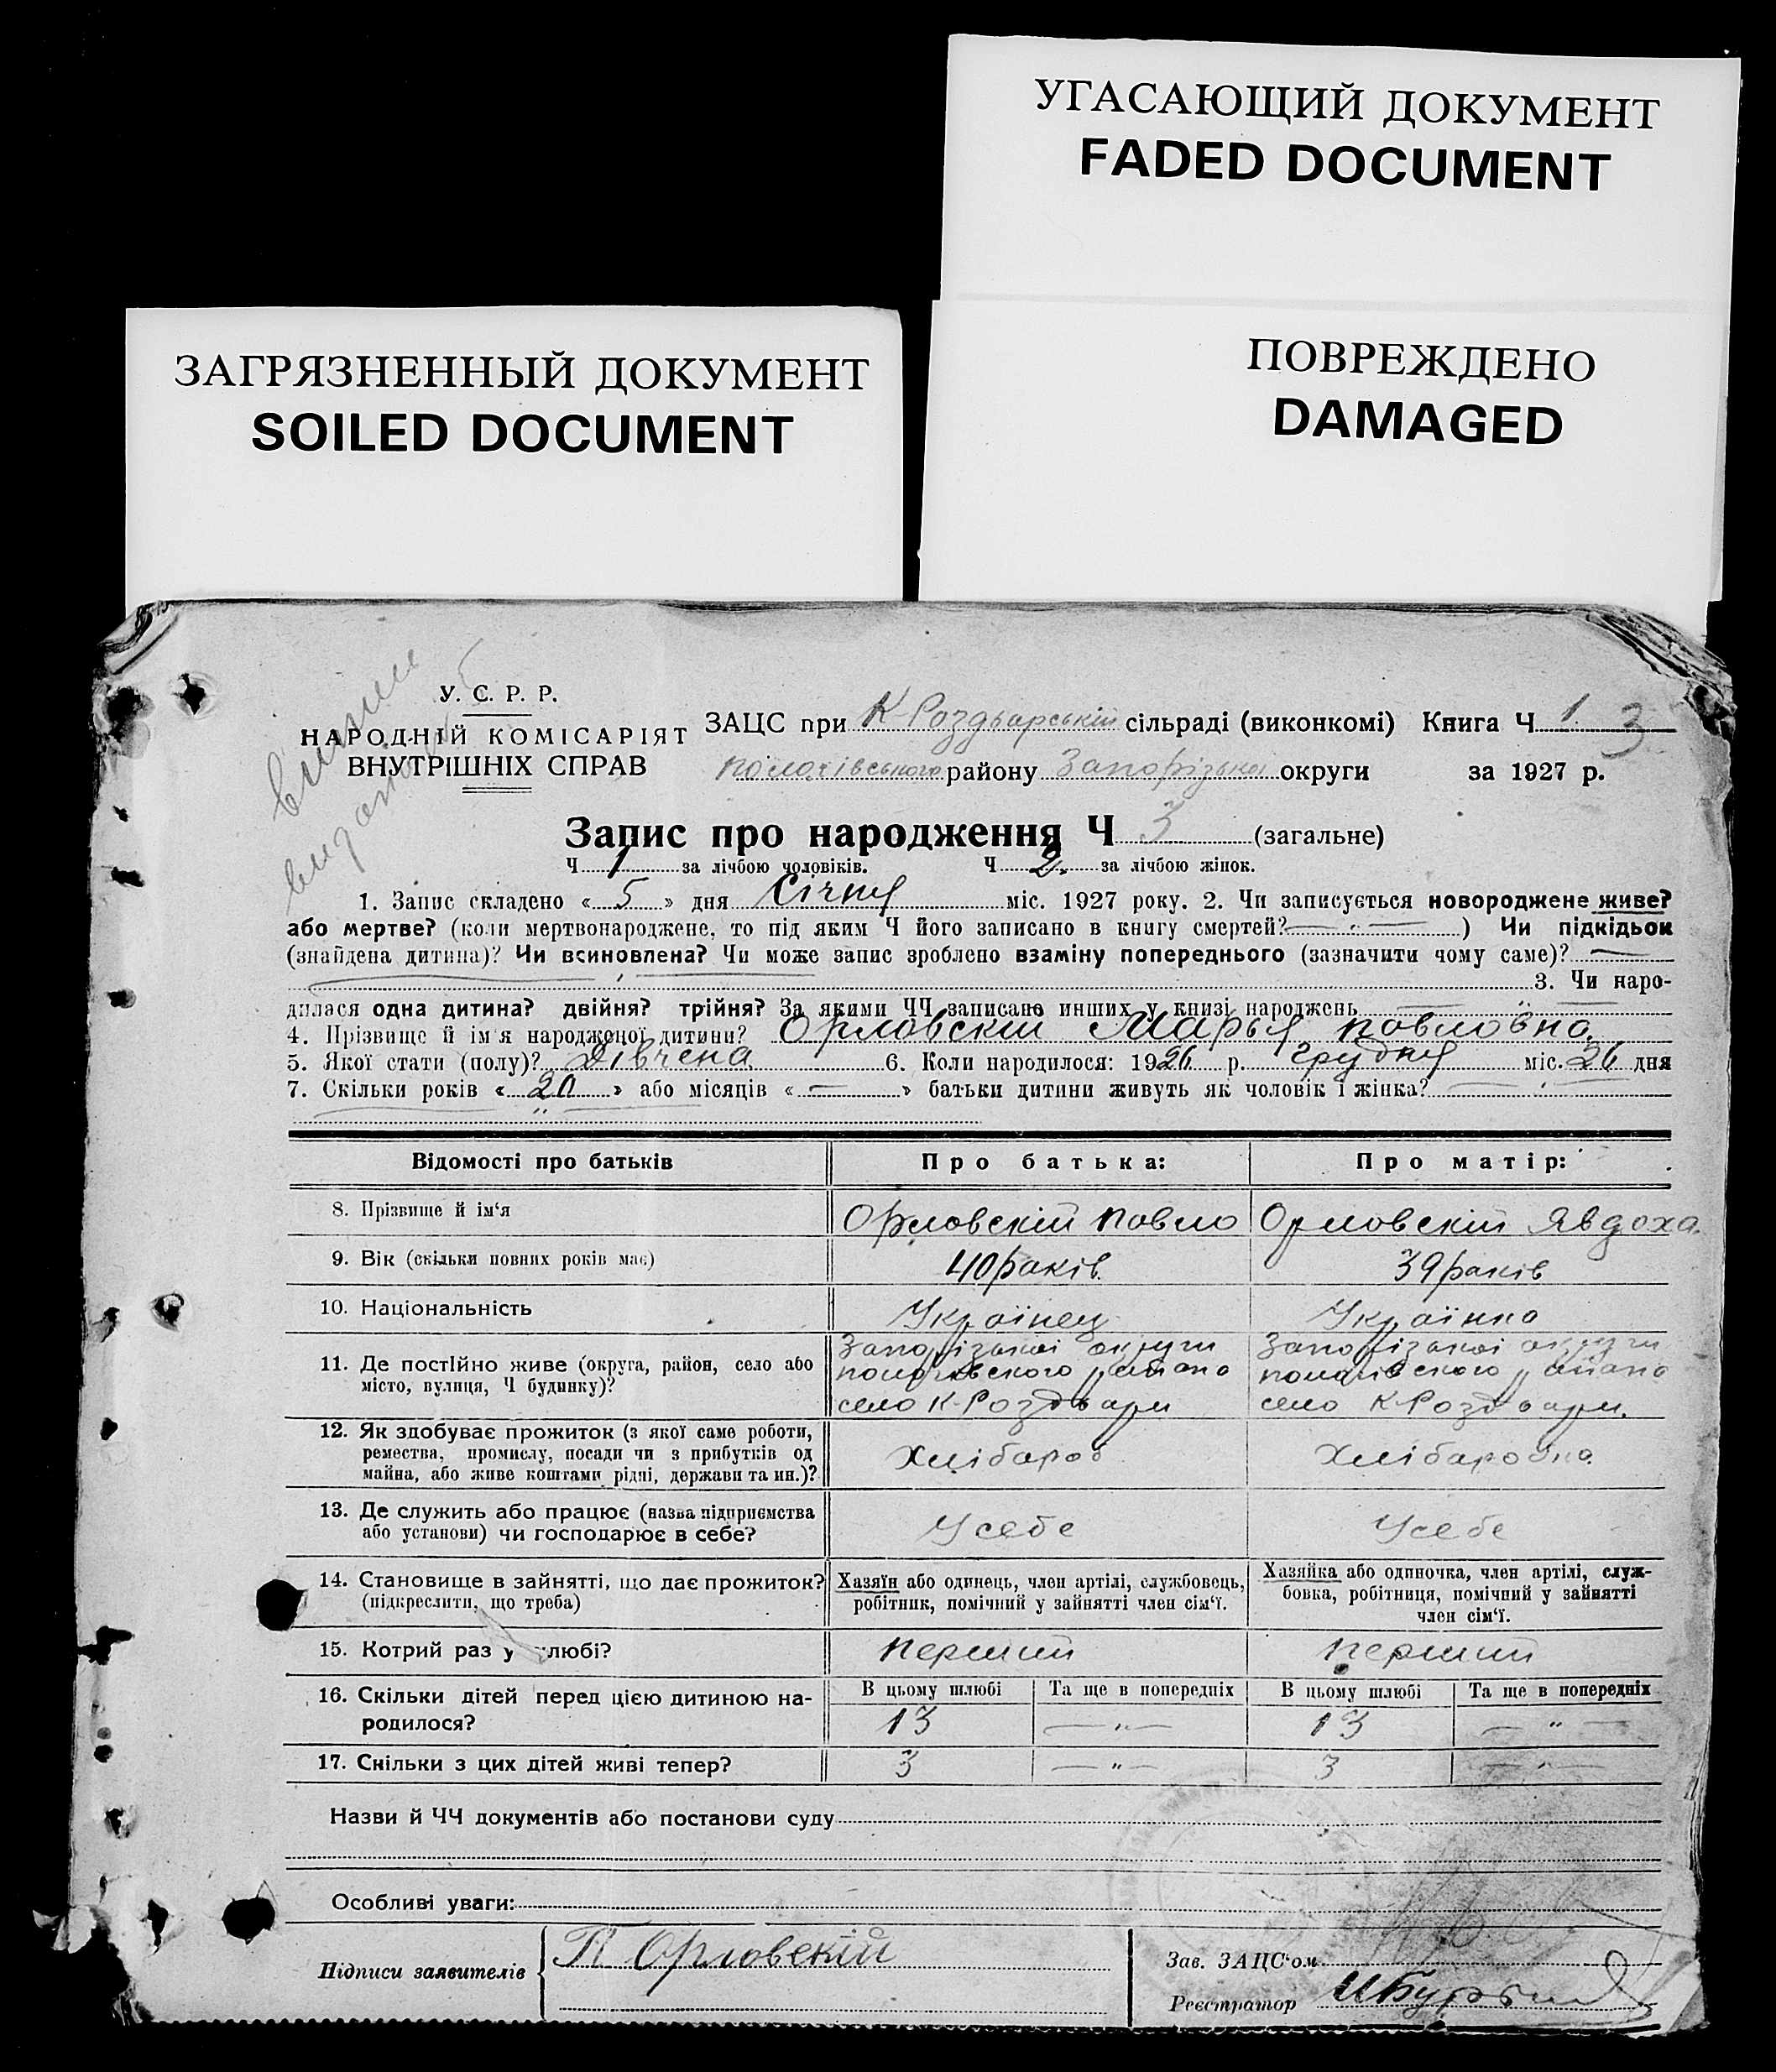 УГАСАЮЩИЙ ДОКУМЕНТ
FADED DOCUMENT
ЗАГРЯЗНЕННЫЙ ДОКУМЕНТ
SOILED DOCUMENT
ПОВРЕЖДЕНО
DAMAGED
У. С. Р. Р.
НАРОДНІЙ КОМІСАРІЯТ
ВНУТРІШНІХ СПРАВ
ЗАЦС при К-Роздьарській сільраді (виконкомі) Книга Ч 1 3
пологівського району Запорізька округи за 1927 р.
Запис про народження Ч 3 (загальне)
Ч 1 за лічбою чоловіків. Ч 2. за лічбою жінок.
1. Запис складено « 5 » дня Січня міс. 1927 року. 2. Чи записується новороджене живе?
або мертве? (коли мертвонароджене, то під яким Ч його записано в книгу смертей? — " — ) Чи підкідьок
(знайдена дитина)? Чи всиновлена? Чи може запис зроблено взаміну попереднього (зазначити чому саме)? —
3. Чи наро-
дилася одна дитина? двійня? трійня? За якими ЧЧ записано инших у книзі народжень — " —
4. Прізвище й ім'я народженої дитини? Орловскій Марья павловна.
5. Якої стати (полу)? Дівчена 6. Коли народилося: 1926 р. грудня міс. 26 дня
7. Скільки років « 20 » або місяців « — » батьки дитини живуть як чоловік і жінка? — " —
— " —
Відомості про батьків Про батька: Про матір:
8. Прізвище й ім'я Орловскій павло Орловскій Явдоха.
9. Вік (скільки повних років має) 40 раків. 39 раків
10. Національність Українец Українка
11. Де постійно живе (округа, район, село або Запорізькоі округи Запорізькоі округи
місто, вулиця, Ч будинку)? пологівского раиано пологівского раиано
село К-Роздьари село К-Роздьари.
12. Як здобуває прожиток (з якої саме роботи,
ремества, промислу, посади чи з прибутків од Хлібароб Хлібаробка.
майна, або живе коштами рідні, держави та ин.)?
13. Де служить або працює (назва підприємства Усебе Усебе
або установи) чи господарює в себе?
14. Становище в зайнятті, що дає прожиток? Хазяїн або одинець, член артілі, службовець, Хазяйка або одиночка, член артілі, служ-
(підкреслити, що треба) робітник, помічний у зайнятті член сім'ї. бовка, робітниця, помічний у зайнятті
член сім'ї.
15. Котрий раз у шлюбі? перший перший
16. Скільки дітей перед цією дитиною на- В цьому шлюбі Та ще в попередніх В цьому шлюбі Та ще в попередніх
родилося? 13 — " — 13 — " —
17. Скільки з цих дітей живі тепер? 3 — " — 3 — " —
Назви й ЧЧ документів або постанови суду
Особливі уваги:
Підписи заявителів П Орловскій
Зав. ЗАЦС'ом
Реєстратор